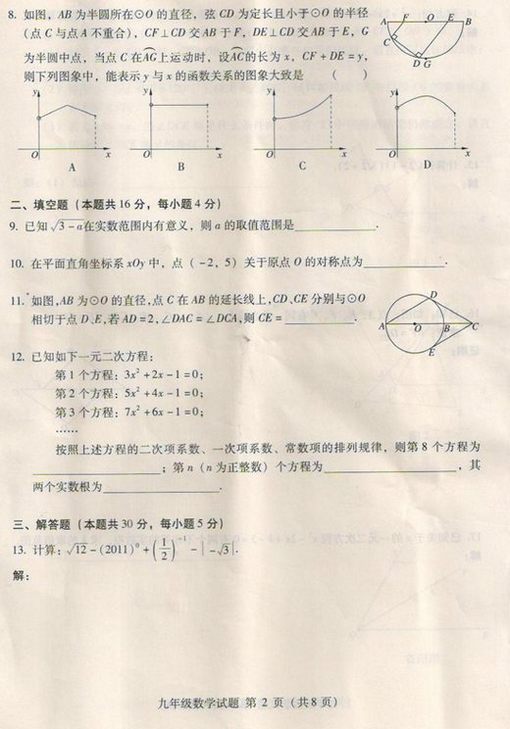 8. 如图，AB 为半圆所在⊙O 的直径，弦 CD 为定长且小于⊙O 的半径
(点 C 与点 A 不重合)，CF⊥CD 交 AB 于 F，DE⊥CD 交 AB 于 E，G
为半圆中点，当点 C 在 AG⌢ 上运动时，设 AC⌢ 的长为 x，CF + DE = y，
则下列图象中，能表示 y 与 x 的函数关系的图象大致是 (    )
A F O E B
C
D G
y y y y
O x O x O x O x
A B C D
二、填空题 (本题共 16 分，每小题 4 分)
9. 已知 √(3 - a) 在实数范围内有意义，则 a 的取值范围是____________.
10. 在平面直角坐标系 xOy 中，点 ( - 2，5) 关于原点 O 的对称点为____________.
11. 如图，AB 为⊙O 的直径，点 C 在 AB 的延长线上，CD、CE 分别与⊙O
相切于点 D、E，若 AD = 2，∠DAC = ∠DCA，则 CE = ____________.
D
A O B C
E
12. 已知如下一元二次方程：
第 1 个方程：3x² + 2x - 1 = 0；
第 2 个方程：5x² + 4x - 1 = 0；
第 3 个方程：7x² + 6x - 1 = 0；
……
按照上述方程的二次项系数、一次项系数、常数项的排列规律，则第 8 个方程为
____________；第 n (n 为正整数) 个方程为____________，其
两个实数根为____________.
三、解答题 (本题共 30 分，每小题 5 分)
13. 计算：√12 - (2011)⁰ + (1/2)⁻ - | - √3 |.
解：
九年级数学试题 第 2 页 (共 8 页)